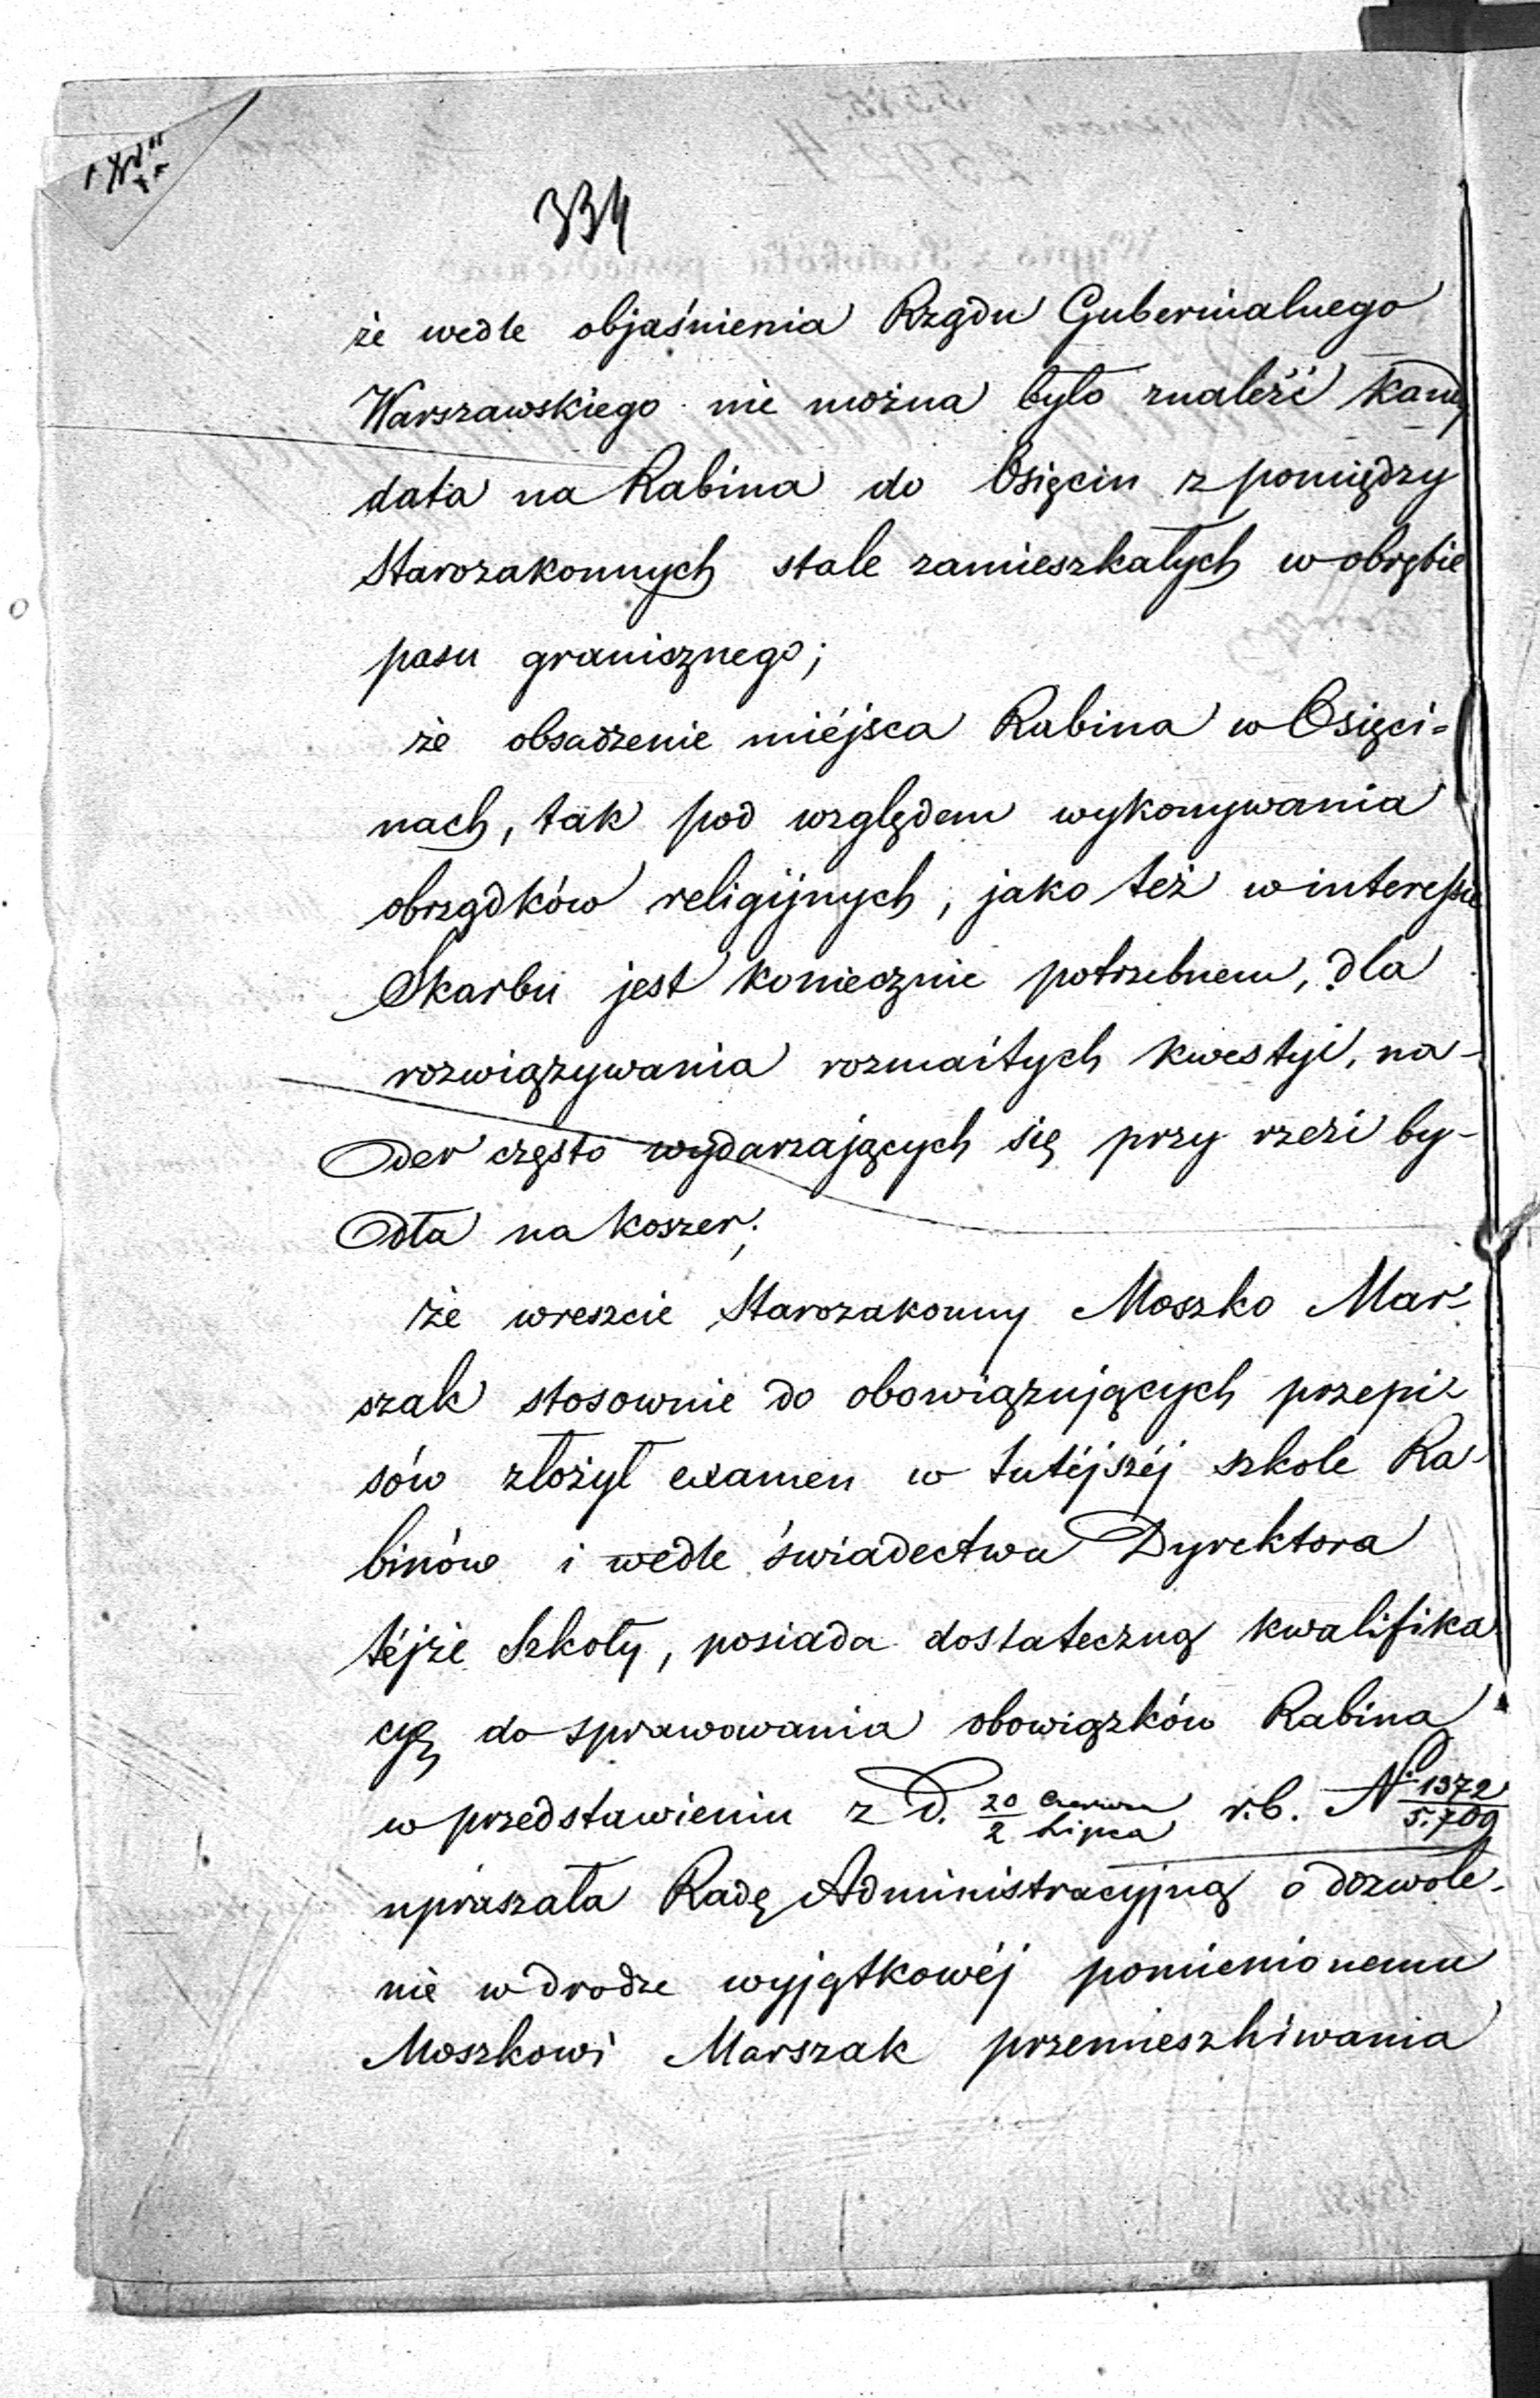 334
że wedle objaśnienia Rządu Gubernialnego
Warszawskiego nie można było znaleźć kandy
data na Rabina do Osięcin z pomiędzy
Starozakonnych stale zamieszkałych w obrębie
pasu granicznego;
że obsadzenie miéjsca Rabina w Osięci=
nach, tak pod względem wykonywania
obrządków religijnych, jako też w interessie
Skarbu jest koniecznie potrzebnem, dla
rozwiązywania rozmaitych kwestyi, na-
der często wydarzających się przy rzezi by-
dła na koszer;
że wreszcie Starozakonny Moszko Mar-
szak stosownie do obowiązujących przepi-
sów złożył examen w tutéjszéj szkole Ra-
binów i wedle świadectwa Dyrektora
téjże Szkoły, posiada dostateczną kwalifika
cyę do sprawowania obowiązków Rabina
w przedstawieniu z d. 20 Czerwca / 2 Lipca r.b. № 1372/5.709
upraszała Radę Administracyjną o dozwole-
nie w drodze wyjątkowéj pomienionemu
Moszkowi Marszak przemieszkiwania